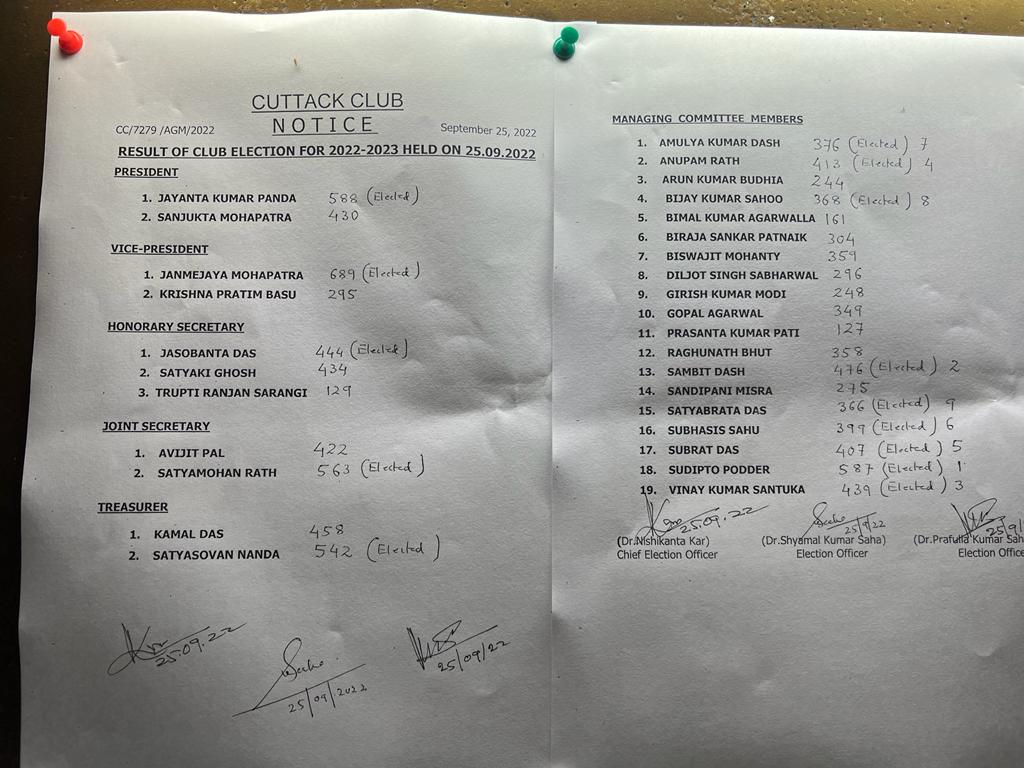 CUTTACK CLUB
CC/7279 /AGM/2022 NOTICE September 25, 2022
RESULT OF CLUB ELECTION FOR 2022-2023 HELD ON 25.09.2022
PRESIDENT
1. JAYANTA KUMAR PANDA 588 (Elected)
2. SANJUKTA MOHAPATRA 430
VICE-PRESIDENT
1. JANMEJAYA MOHAPATRA 689 (Elected)
2. KRISHNA PRATIM BASU 295
HONORARY SECRETARY
1. JASOBANTA DAS 444 (Elected)
2. SATYAKI GHOSH 434
3. TRUPTI RANJAN SARANGI 129
JOINT SECRETARY
1. AVIJIT PAL 422
2. SATYAMOHAN RATH 563 (Elected)
TREASURER
1. KAMAL DAS 458
2. SATYASOVAN NANDA 542 (Elected)
25.09.22
25/09/2022
25/09/22
MANAGING COMMITTEE MEMBERS
1. AMULYA KUMAR DASH 376 (Elected) 7
2. ANUPAM RATH 413 (Elected) 4
3. ARUN KUMAR BUDHIA 244
4. BIJAY KUMAR SAHOO 368 (Elected) 8
5. BIMAL KUMAR AGARWALLA 161
6. BIRAJA SANKAR PATNAIK 304
7. BISWAJIT MOHANTY 359
8. DILJOT SINGH SABHARWAL 296
9. GIRISH KUMAR MODI 248
10. GOPAL AGARWAL 349
11. PRASANTA KUMAR PATI 127
12. RAGHUNATH BHUT 358
13. SAMBIT DASH 476 (Elected) 2
14. SANDIPANI MISRA 275
15. SATYABRATA DAS 366 (Elected) 9
16. SUBHASIS SAHU 399 (Elected) 6
17. SUBRAT DAS 407 (Elected) 5
18. SUDIPTO PODDER 587 (Elected) 1
19. VINAY KUMAR SANTUKA 439 (Elected) 3
25.09.22 25/9/22 25/9/
(Dr.Nishikanta Kar) (Dr.Shyamal Kumar Saha) (Dr.Prafulla Kumar Sah
Chief Election Officer Election Officer Election Office